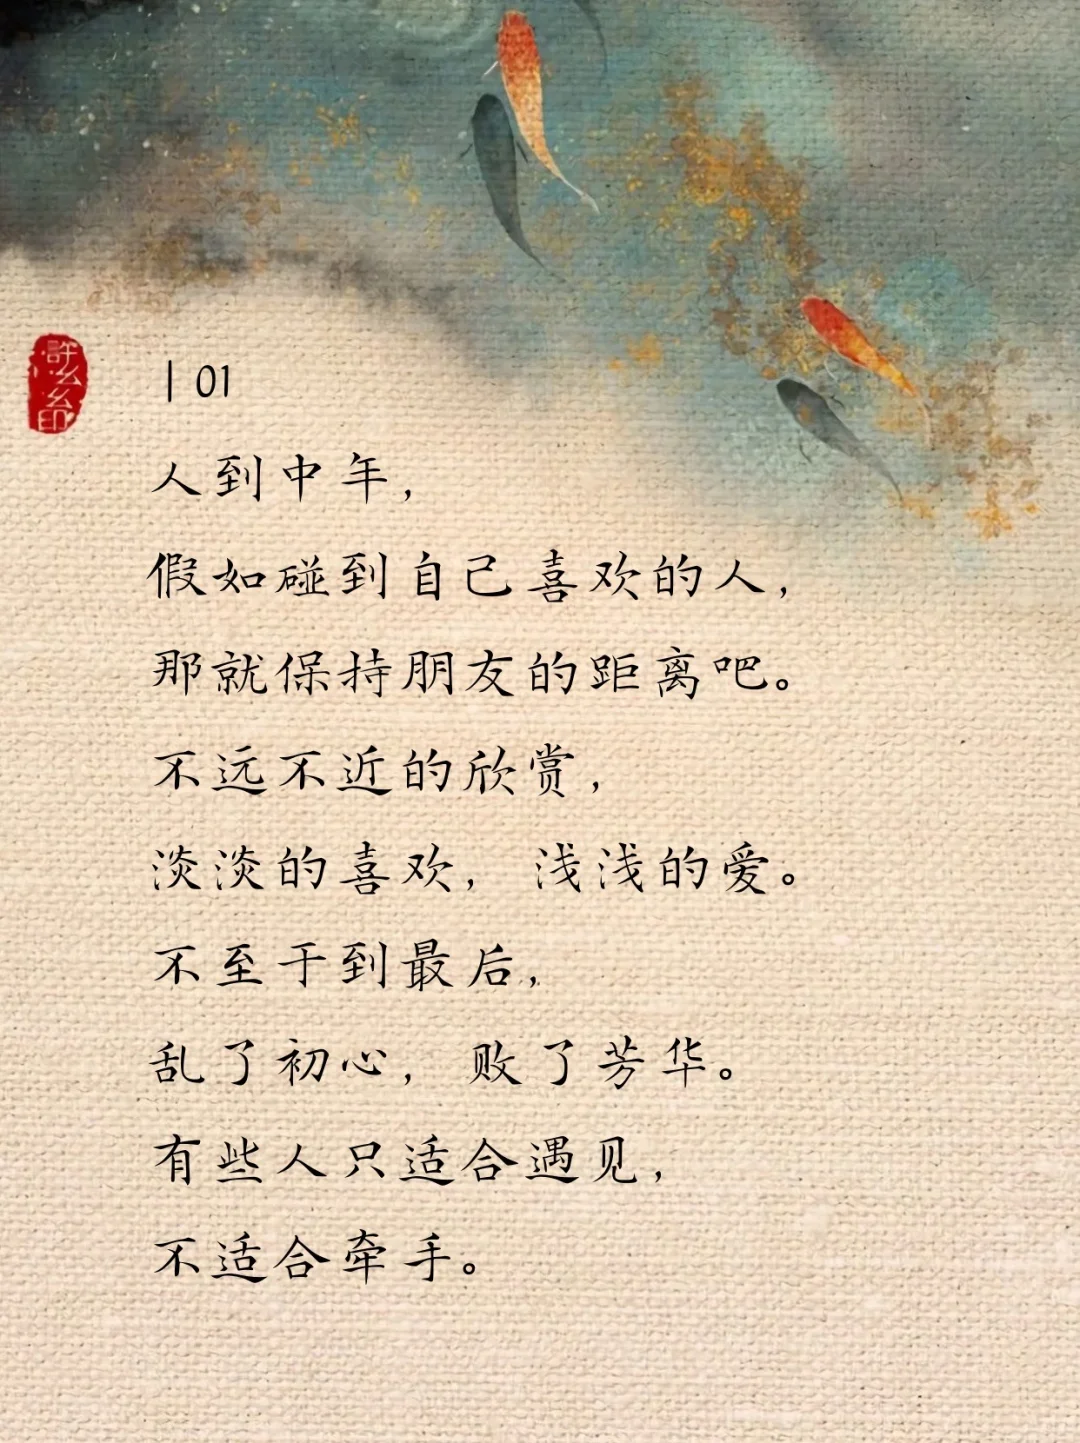 許么么印
| 01
人到中年，
假如碰到自己喜欢的人，
那就保持朋友的距离吧。
不远不近的欣赏，
淡淡的喜欢，浅浅的爱。
不至于到最后，
乱了初心，败了芳华。
有些人只适合遇见，
不适合牵手。